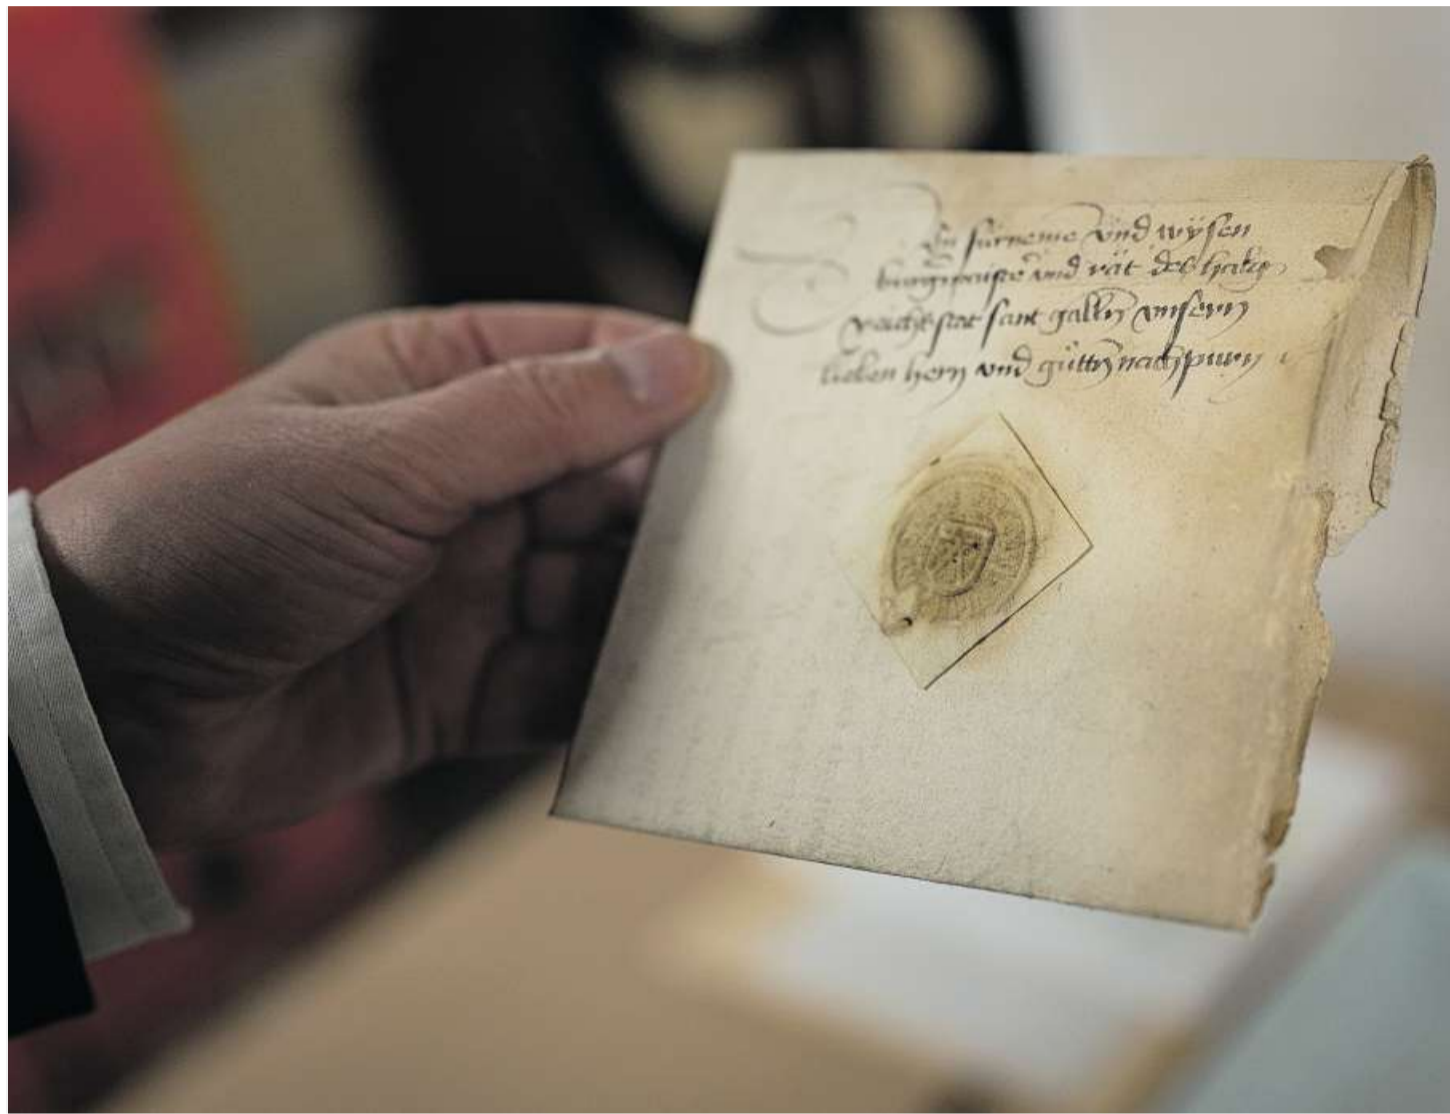 Den fürneme vnd wysen
burgermaister vnd rät des hailigen
reichsstat sant gallen vnsern
lieben hern vnd gůtten nachpurn